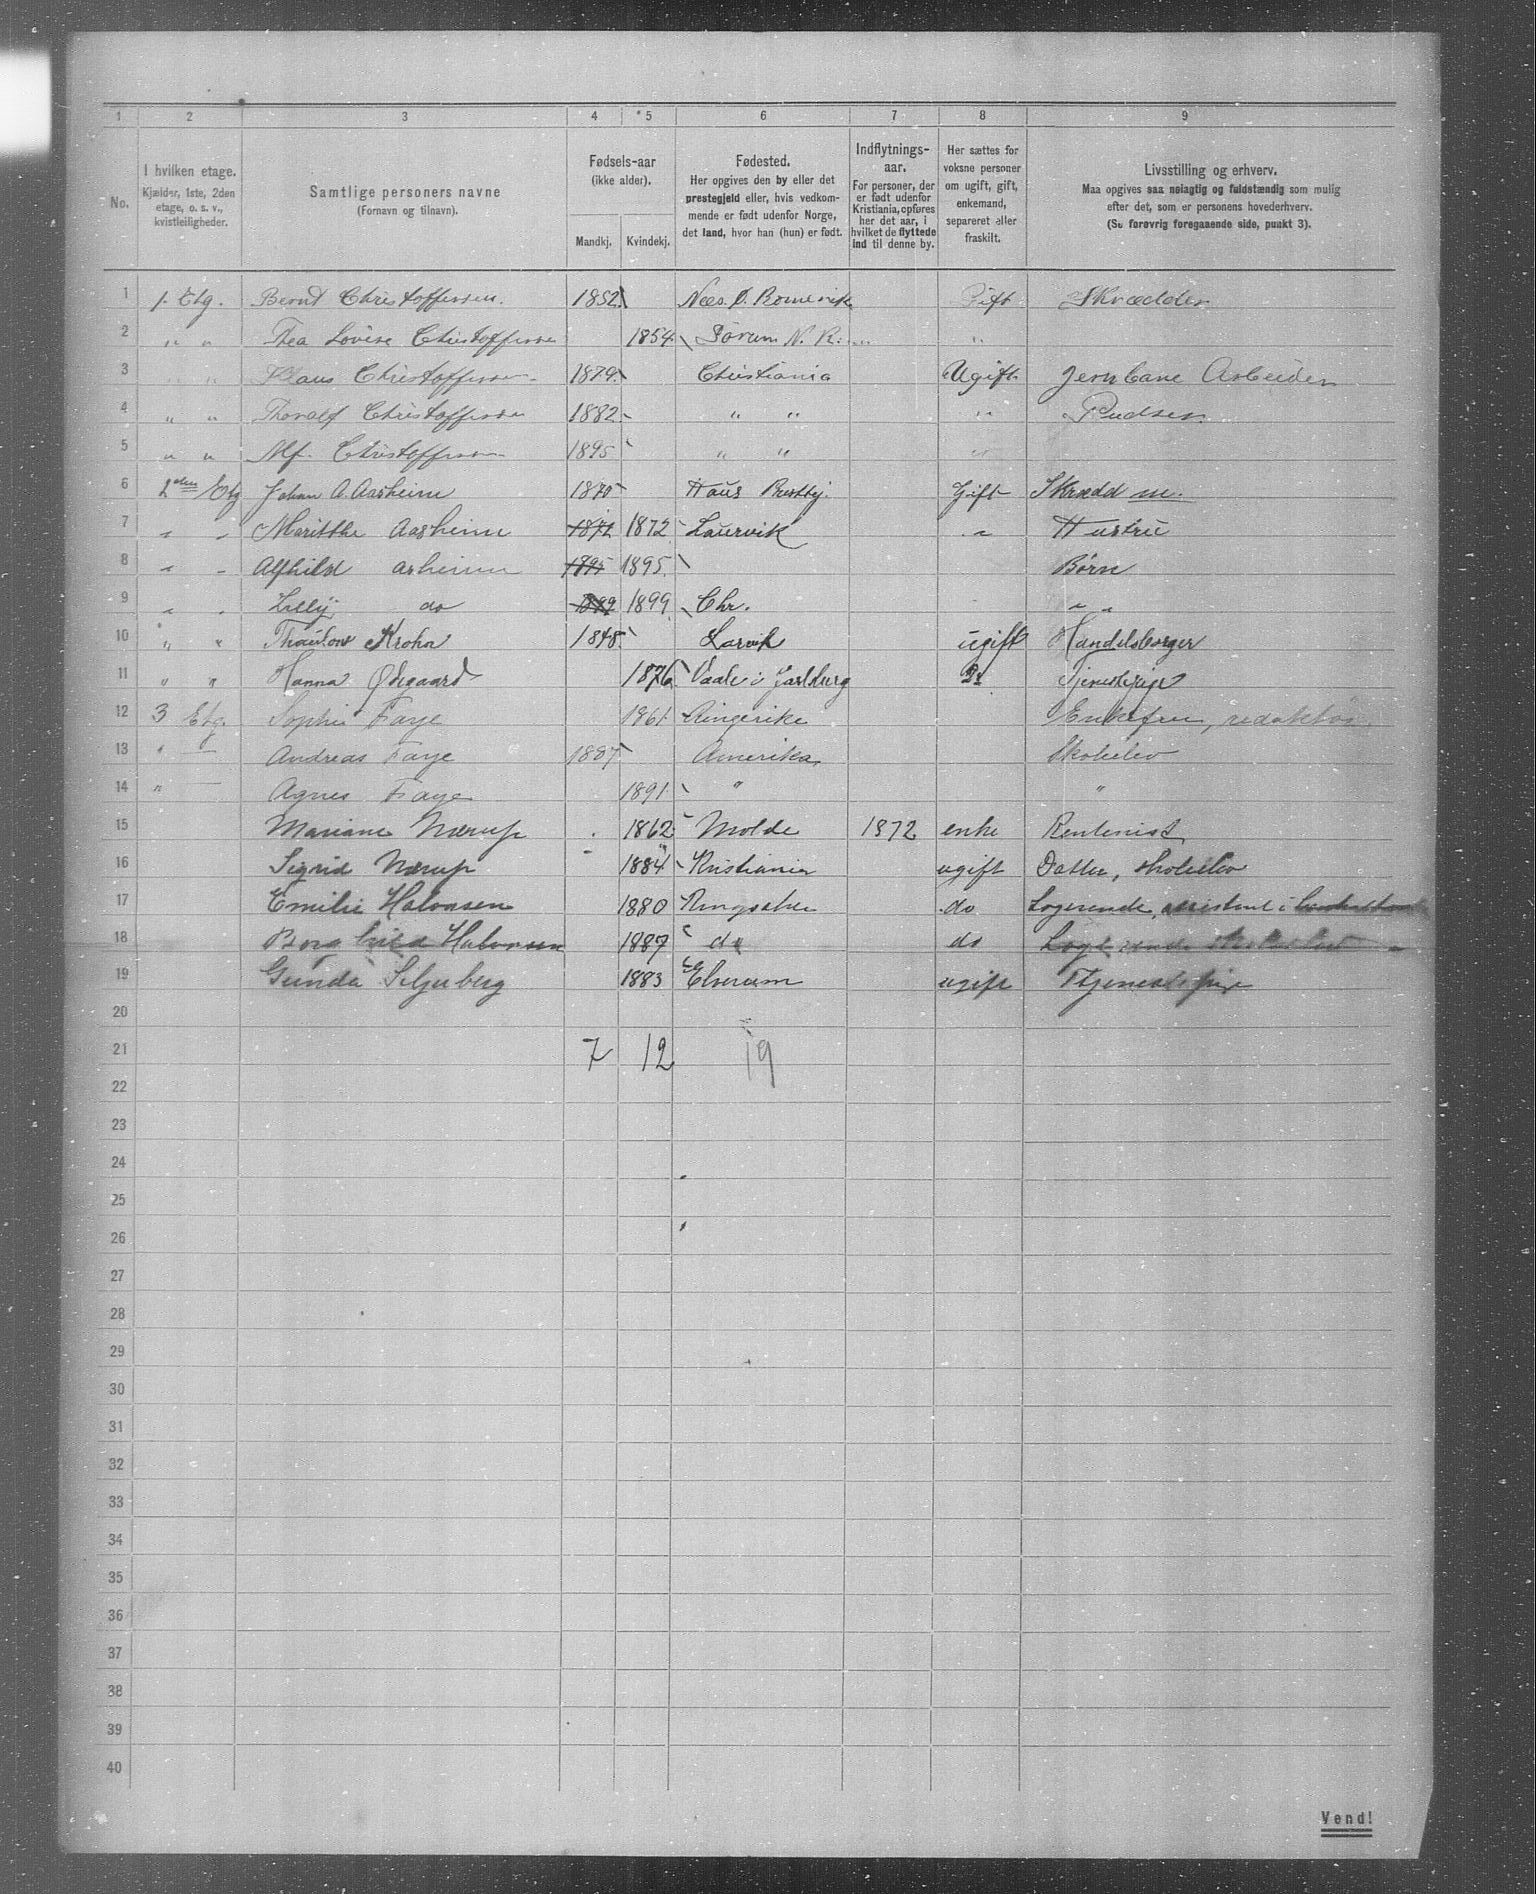 1 2 3 4 5 6 7 8 9
No.
I hvilken etage.
Kjælder, 1ste, 2den
etage, o. s. v.,
kvistleiligheder.
Samtlige personers navne
(Fornavn og tilnavn).
Fødsels-aar
(ikke alder).
Mandkj. Kvindekj.
Fødested.
Her opgives den by eller det
prestegjeld eller, hvis vedkom-
mende er født udenfor Norge,
det land, hvor han (hun) er født.
Indflytnings-
aar.
For personer, der
er født udenfor
Kristiania, opføres
her det aar, i
hvilket de flyttede
ind til denne by.
Her sættes for
voksne personer
om ugift, gift,
enkemand,
separeret eller
fraskilt.
Livsstilling og erhverv.
Maa opgives saa nøiagtig og fuldstændig som mulig
efter det, som er personens hovederhverv.
(Se forøvrig foregaaende side, punkt 3).
1 1. Etg. Bernt Christoffersen. 1852 Næs Ø. Romerik Gift Skrædder
2 " " Thea Lovise Christoffersen 1854 Sørum N. R. "
3 " " Klaus Christoffersen 1879 Christiania Ugift Jernbane Arbeider
4 " " Thoralf Christoffersen 1882 " " " Pudser
5 " " Alf. Christoffersen 1895 " " "
6 2den Etg Johan A. Aasheim 1870 Haus Gift Skrædd m.
7 " " Maritthe Aasheim 1872 1872 Laurvik " Hustru
8 " " Alfhild Asheim 1895 1895 Børn
9 " " Lilly do 1899 1899 Chr. " "
10 " " Thaulow Krohn 1848 Larvik ugift Handelsborger
11 " " Hanna Ødegaard 1876 Vaale i Jarlsberg Do Tjenestepige
12 3 Etg. Sophie Faye 1861 Ringerike Enkefru, redaktør
13 " — Andreas Faye 1887 Amerika Skoleelev
14 " — Agnes Faye 1891 " "
15 Mariane Nærup 1862 Molde 1872 enke Rentenist
16 Sigrid Nærup 1884 Kristiania ugift Datter, skoleelev
17 Emilie Halvorsen 1880 Ringsaker do Logerende, assistent i
18 Borghild Halvorsen 1887 do do Logerende
19 Gunda Siljuberg 1883 Elverum ugift Tjenestepige
20
21 7 12 19
22
23
24
25
26
27
28
29
30
31
32
33
34
35
36
37
38
39
40
Vend!